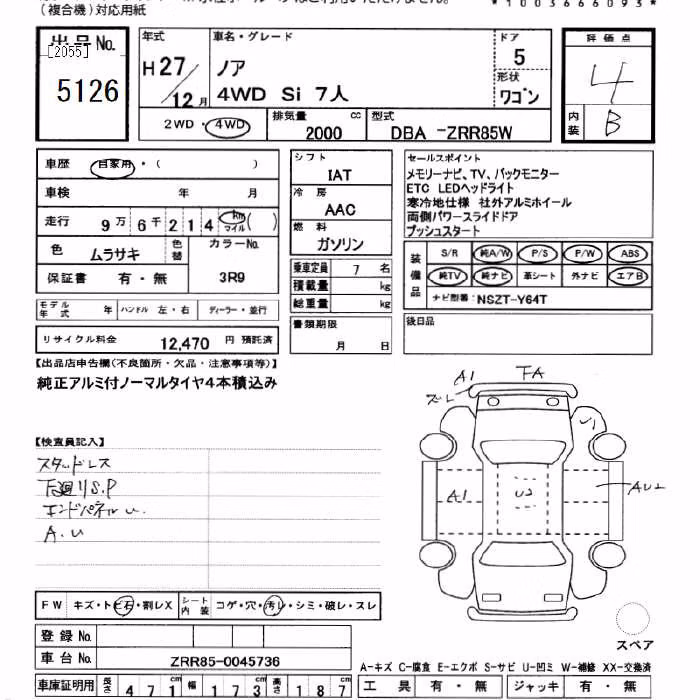 (複合機)対応用紙
*1003666093*
出品No.
[2055]
5126
年式
H27/12月
車名・グレード
ノア
4WD Si 7人
ドア
5
形状
ワゴン
評価点
4
内装
B
2WD・4WD
排気量
2000
cc
型式
DBA -ZRR85W
車歴
自家用・( )
車検 年 月
走行 9万6千214 km マイル ( )
色
ムラサキ
色替
カラーNo.
3R9
保証書 有・無
モデル年式 年 ハンドル 左・右 ディーラー・並行
リサイクル料金 12,470 円 預託済
シフト
IAT
冷房
AAC
燃料
ガソリン
乗車定員 7 名
積載量 kg
総重量 kg
書類期限
月 日
セールスポイント
メモリーナビ、TV、バックモニター
ETC LEDヘッドライト
寒冷地仕様 社外アルミホイール
両側パワースライドドア
プッシュスタート
装備品
S/R 純A/W P/S P/W ABS
純TV 純ナビ 革シート 外ナビ エアB
ナビ型番:NSZT-Y64T
後日品
【出品店申告欄(不良箇所・欠品・注意事項等)】
純正アルミ付ノーマルタイヤ4本積込み
【検査員記入】
スタッドレス
下廻りS.P
エンドパネルu.
A.U
A1
FA
ズレ
A1
U2
AU2
FW キズ・トビ石・割レX
シート内装 コゲ・穴・汚レ・シミ・破レ・スレ
登録No.
車台No. ZRR85-0045736
車庫証明用 長さ 471 cm 幅 173 cm 高さ 187 cm
スペア
A-キズ C-腐食 E-エクボ S-サビ U-凹ミ W-補修 XX-交換済
工具 有・無 ジャッキ 有・無